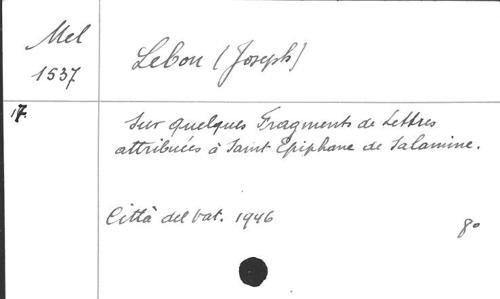 Mel
1537
Lebon (Joseph)
17.
Sur quelques Fragments de Lettres
attribuées à Saint Epiphane de Salamine.
Città del Vat. 1946
8°